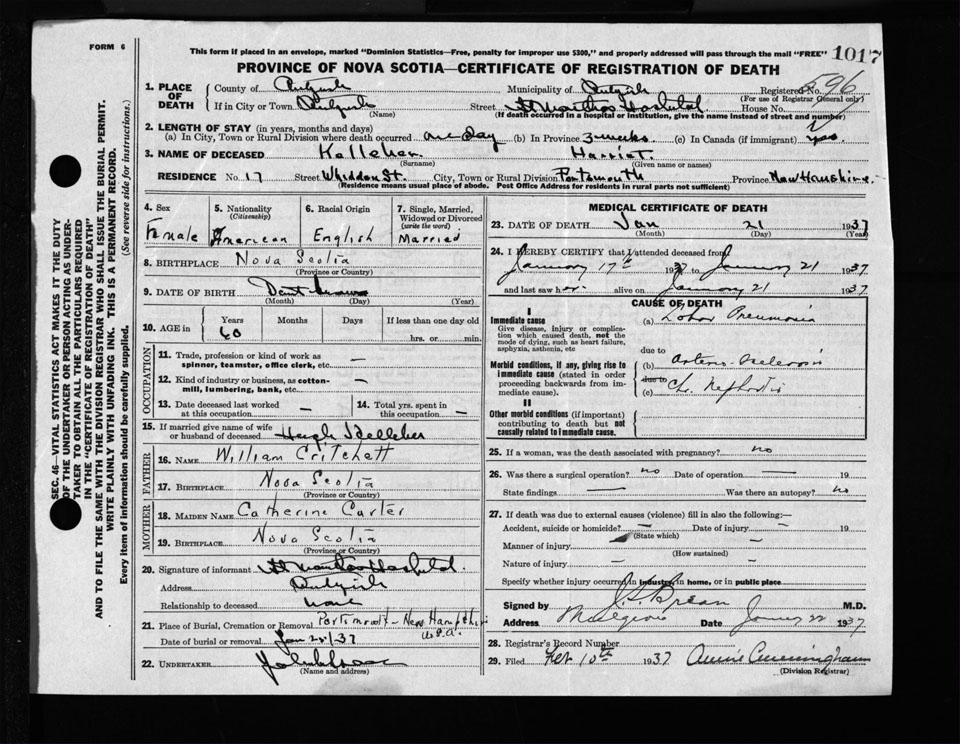 FORM 6
This form if placed in an envelope, marked "Dominion Statistics—Free, penalty for improper use $300," and properly addressed will pass through the mail "FREE"
1017
PROVINCE OF NOVA SCOTIA—CERTIFICATE OF REGISTRATION OF DEATH
1. PLACE OF DEATH
County of
Municipality of
Registered No. 596
(For use of Registrar General only)
If in City or Town
(Name)
Street St Marthas Hospital
House No.
(If death occurred in a hospital or institution, give the name instead of street and number)
2. LENGTH OF STAY (in years, months and days)
(a) In City, Town or Rural Division where death occurred one day (b) In Province 3 weeks (c) In Canada (if immigrant)
3. NAME OF DECEASED Kelleher Harriet
(Surname) (Given name or names)
RESIDENCE No. 17 Street Whidden St. City, Town or Rural Division Portsmouth Province New Hampshire
(Residence means usual place of abode. Post Office Address for residents in rural parts not sufficient)
4. Sex
Female
5. Nationality
(Citizenship)
American
6. Racial Origin
English
7. Single, Married, Widowed or Divorced
(write the word)
Married
8. BIRTHPLACE Nova Scotia
(Province or Country)
9. DATE OF BIRTH
(Month) (Day) (Year)
10. AGE in
Years Months Days If less than one day old
60 hrs. or min.
OCCUPATION
11. Trade, profession or kind of work as spinner, teamster, office clerk, etc. —
12. Kind of industry or business, as cotton-mill, lumbering, bank, etc. —
13. Date deceased last worked at this occupation —
14. Total yrs. spent in this occupation —
15. If married give name of wife or husband of deceased Hugh Kelleher
FATHER
16. NAME William Critchett
17. BIRTHPLACE Nova Scotia
(Province or Country)
MOTHER
18. MAIDEN NAME Catherine Carter
19. BIRTHPLACE Nova Scotia
(Province or Country)
20. Signature of informant St Marthas Hospital
Address
Relationship to deceased none
21. Place of Burial, Cremation or Removal Portsmouth - New Hampshire U.S.A.
Date of burial or removal
22. UNDERTAKER
(Name and address)
MEDICAL CERTIFICATE OF DEATH
23. DATE OF DEATH Jan 21 1937
(Month) (Day) (Year)
24. I HEREBY CERTIFY that I attended deceased from
January 17th 1937 to January 21 1937
and last saw her alive on January 21 1937
CAUSE OF DEATH
I
Immediate cause
Give disease, injury or complication which caused death, not the mode of dying, such as heart failure, asphyxia, asthenia, etc
(a) Lobar Pneumonia
due to
Morbid conditions, if any, giving rise to immediate cause (stated in order proceeding backwards from immediate cause).
(b) Arterio-Sclerosis
due to
(c) Ch. Nephritis
II
Other morbid conditions (if important) contributing to death but not causally related to immediate cause.
25. If a woman, was the death associated with pregnancy? no
26. Was there a surgical operation? no Date of operation — 19
State findings — Was there an autopsy? no
27. If death was due to external causes (violence) fill in also the following:—
Accident, suicide or homicide? — Date of injury — 19
(State which)
Manner of injury —
(How sustained)
Nature of injury —
Specify whether injury occurred in industry, in home, or in public place
Signed by M.D.
Address Mulgrave Date January 22 1937
28. Registrar's Record Number
29. Filed Feb 10th 1937 Annie Cunningham
(Division Registrar)
SEC. 46—VITAL STATISTICS ACT MAKES IT THE DUTY
OF THE UNDERTAKER OR PERSON ACTING AS UNDER-
TAKER TO OBTAIN ALL THE PARTICULARS REQUIRED
IN THE "CERTIFICATE OF REGISTRATION OF DEATH"
AND TO FILE THE SAME WITH THE DIVISION REGISTRAR WHO SHALL ISSUE THE BURIAL PERMIT.
WRITE PLAINLY WITH UNFADING INK. THIS IS A PERMANENT RECORD.
Every item of information should be carefully supplied. (See reverse side for instructions.)